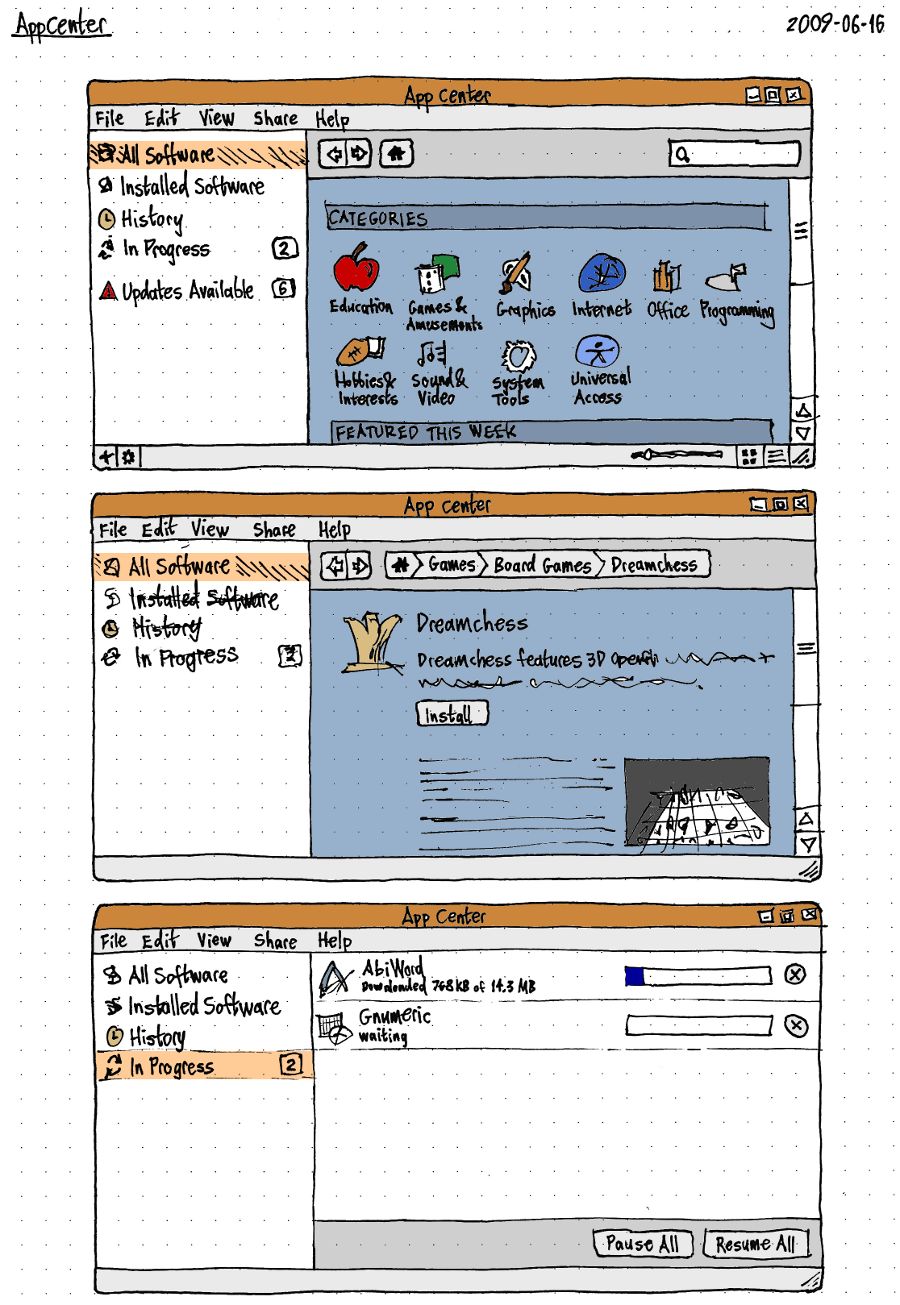 AppCenter
2009-06-16
App Center
File Edit View Share Help
All Software
Installed Software
History
In Progress 2
Updates Available 6
CATEGORIES
Education
Games &
Amusements
Graphics
Internet
Office
Programming
Hobbies &
Interests
Sound &
Video
System
Tools
Universal
Access
FEATURED THIS WEEK
App Center
File Edit View Share Help
All Software
Installed Software
History
In Progress 2
Games Board Games Dreamchess
Dreamchess
Dreamchess features 3D OpenGL
Install
App Center
File Edit View Share Help
All Software
Installed Software
History
In Progress 2
AbiWord
Downloaded 768 kB of 14.3 MB
Gnumeric
waiting
Pause All
Resume All